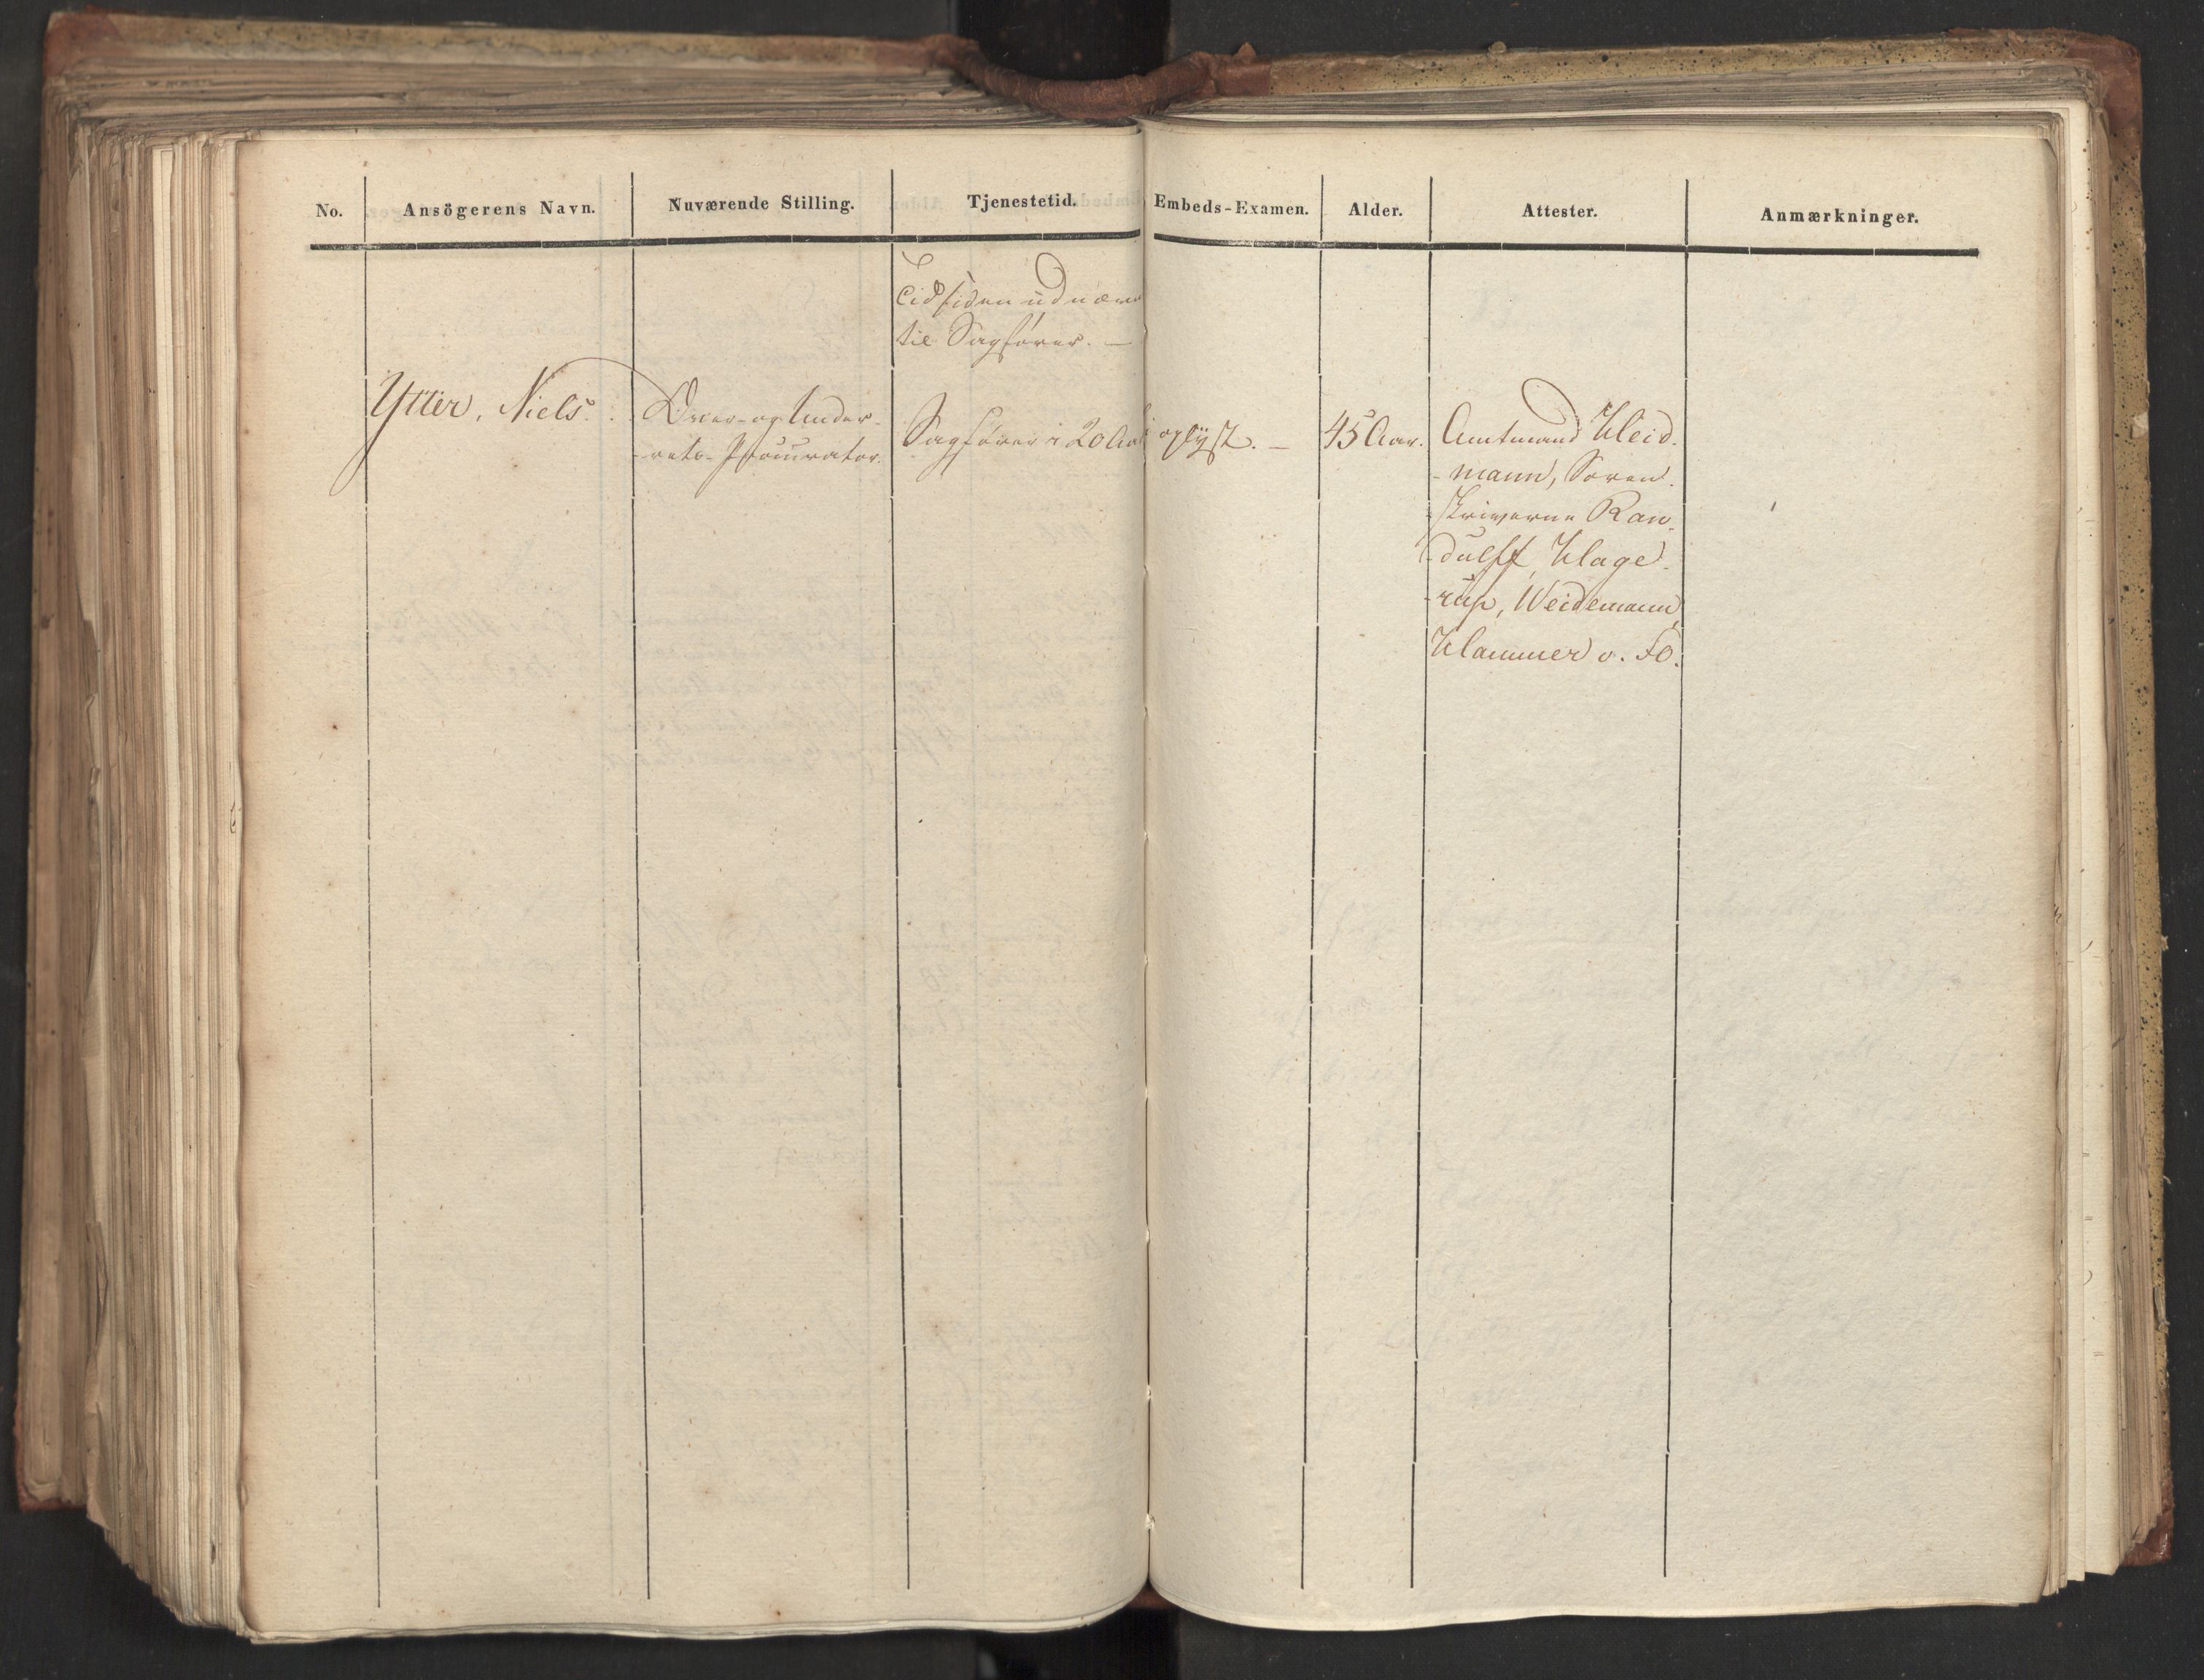 No. Ansögerens Navn. Nuværende Stilling. Tjenestetid. Embeds-Examen. Alder. Attester. Anmærkninger.
Tid siden udnævnt
til Sagfører. —
Ytter, Niels. Over- og Under-
-rets-Procurator.
Sagfører i 20 Aar
oplyst. —
45 Aar.
Amtmand Kleid-
-mann, Soren-
skriverne Ran-
-dulff, Klage-
-rup, Weidemann,
Klammer o. Fl.